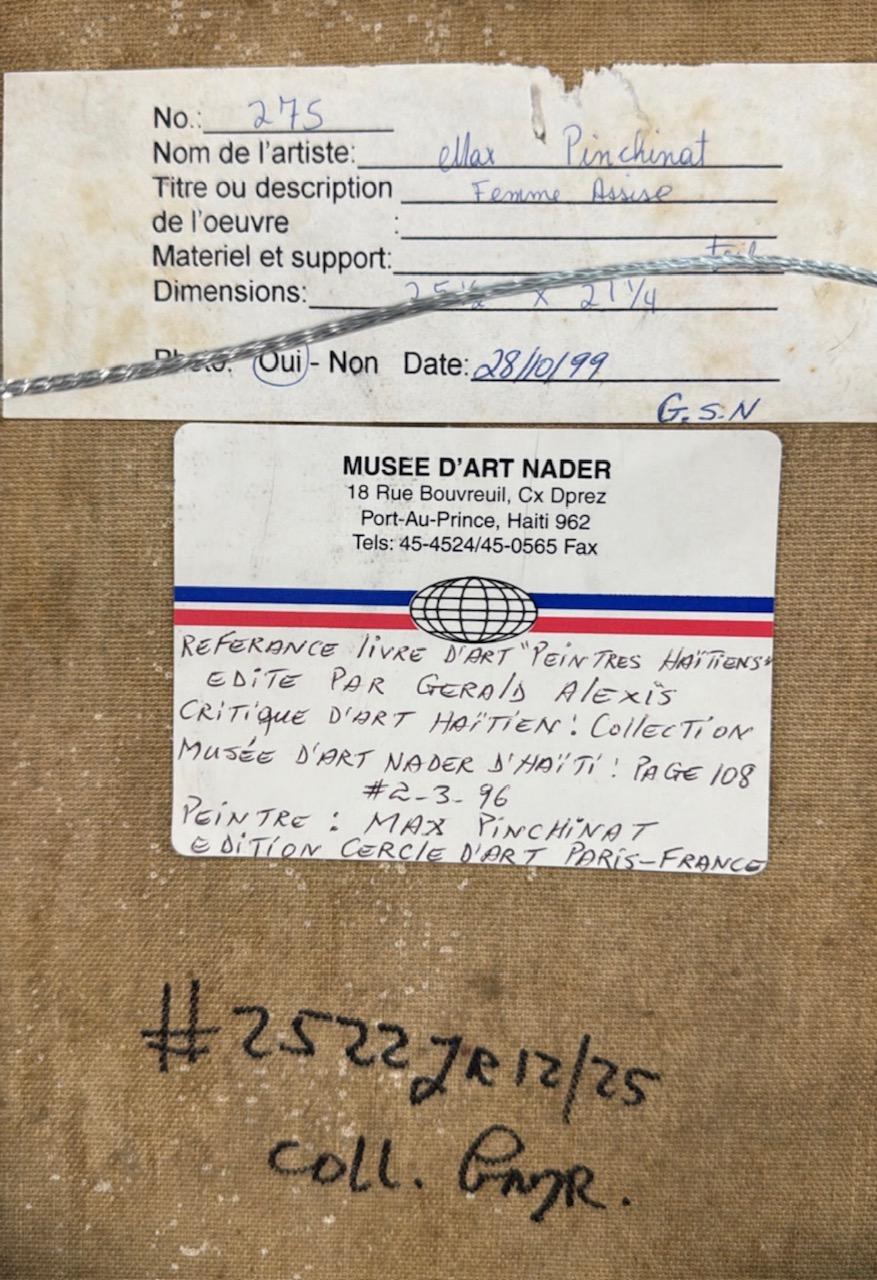 No.: 275
Nom de l'artiste: Max Pinchinat
Titre ou description Femme Assise
de l'oeuvre :
Materiel et support:
Dimensions: 25 1/2 x 21 1/4
Photo: Oui - Non Date: 28/10/99
G.S.N
MUSEE D'ART NADER
18 Rue Bouvreuil, Cx Dprez
Port-Au-Prince, Haiti 962
Tels: 45-4524/45-0565 Fax
REFERANCE LIVRE D'ART "PEINTRES HAÏTIENS"
EDITE PAR GERALD ALEXIS
CRITIQUE D'ART HAÏTIEN: COLLECTION
MUSÉE D'ART NADER D'HAÏTI: PAGE 108
#2-3-96
PEINTRE: MAX PINCHINAT
EDITION CERCLE D'ART PARIS-FRANCE
#2522 JR 12/25
Coll.